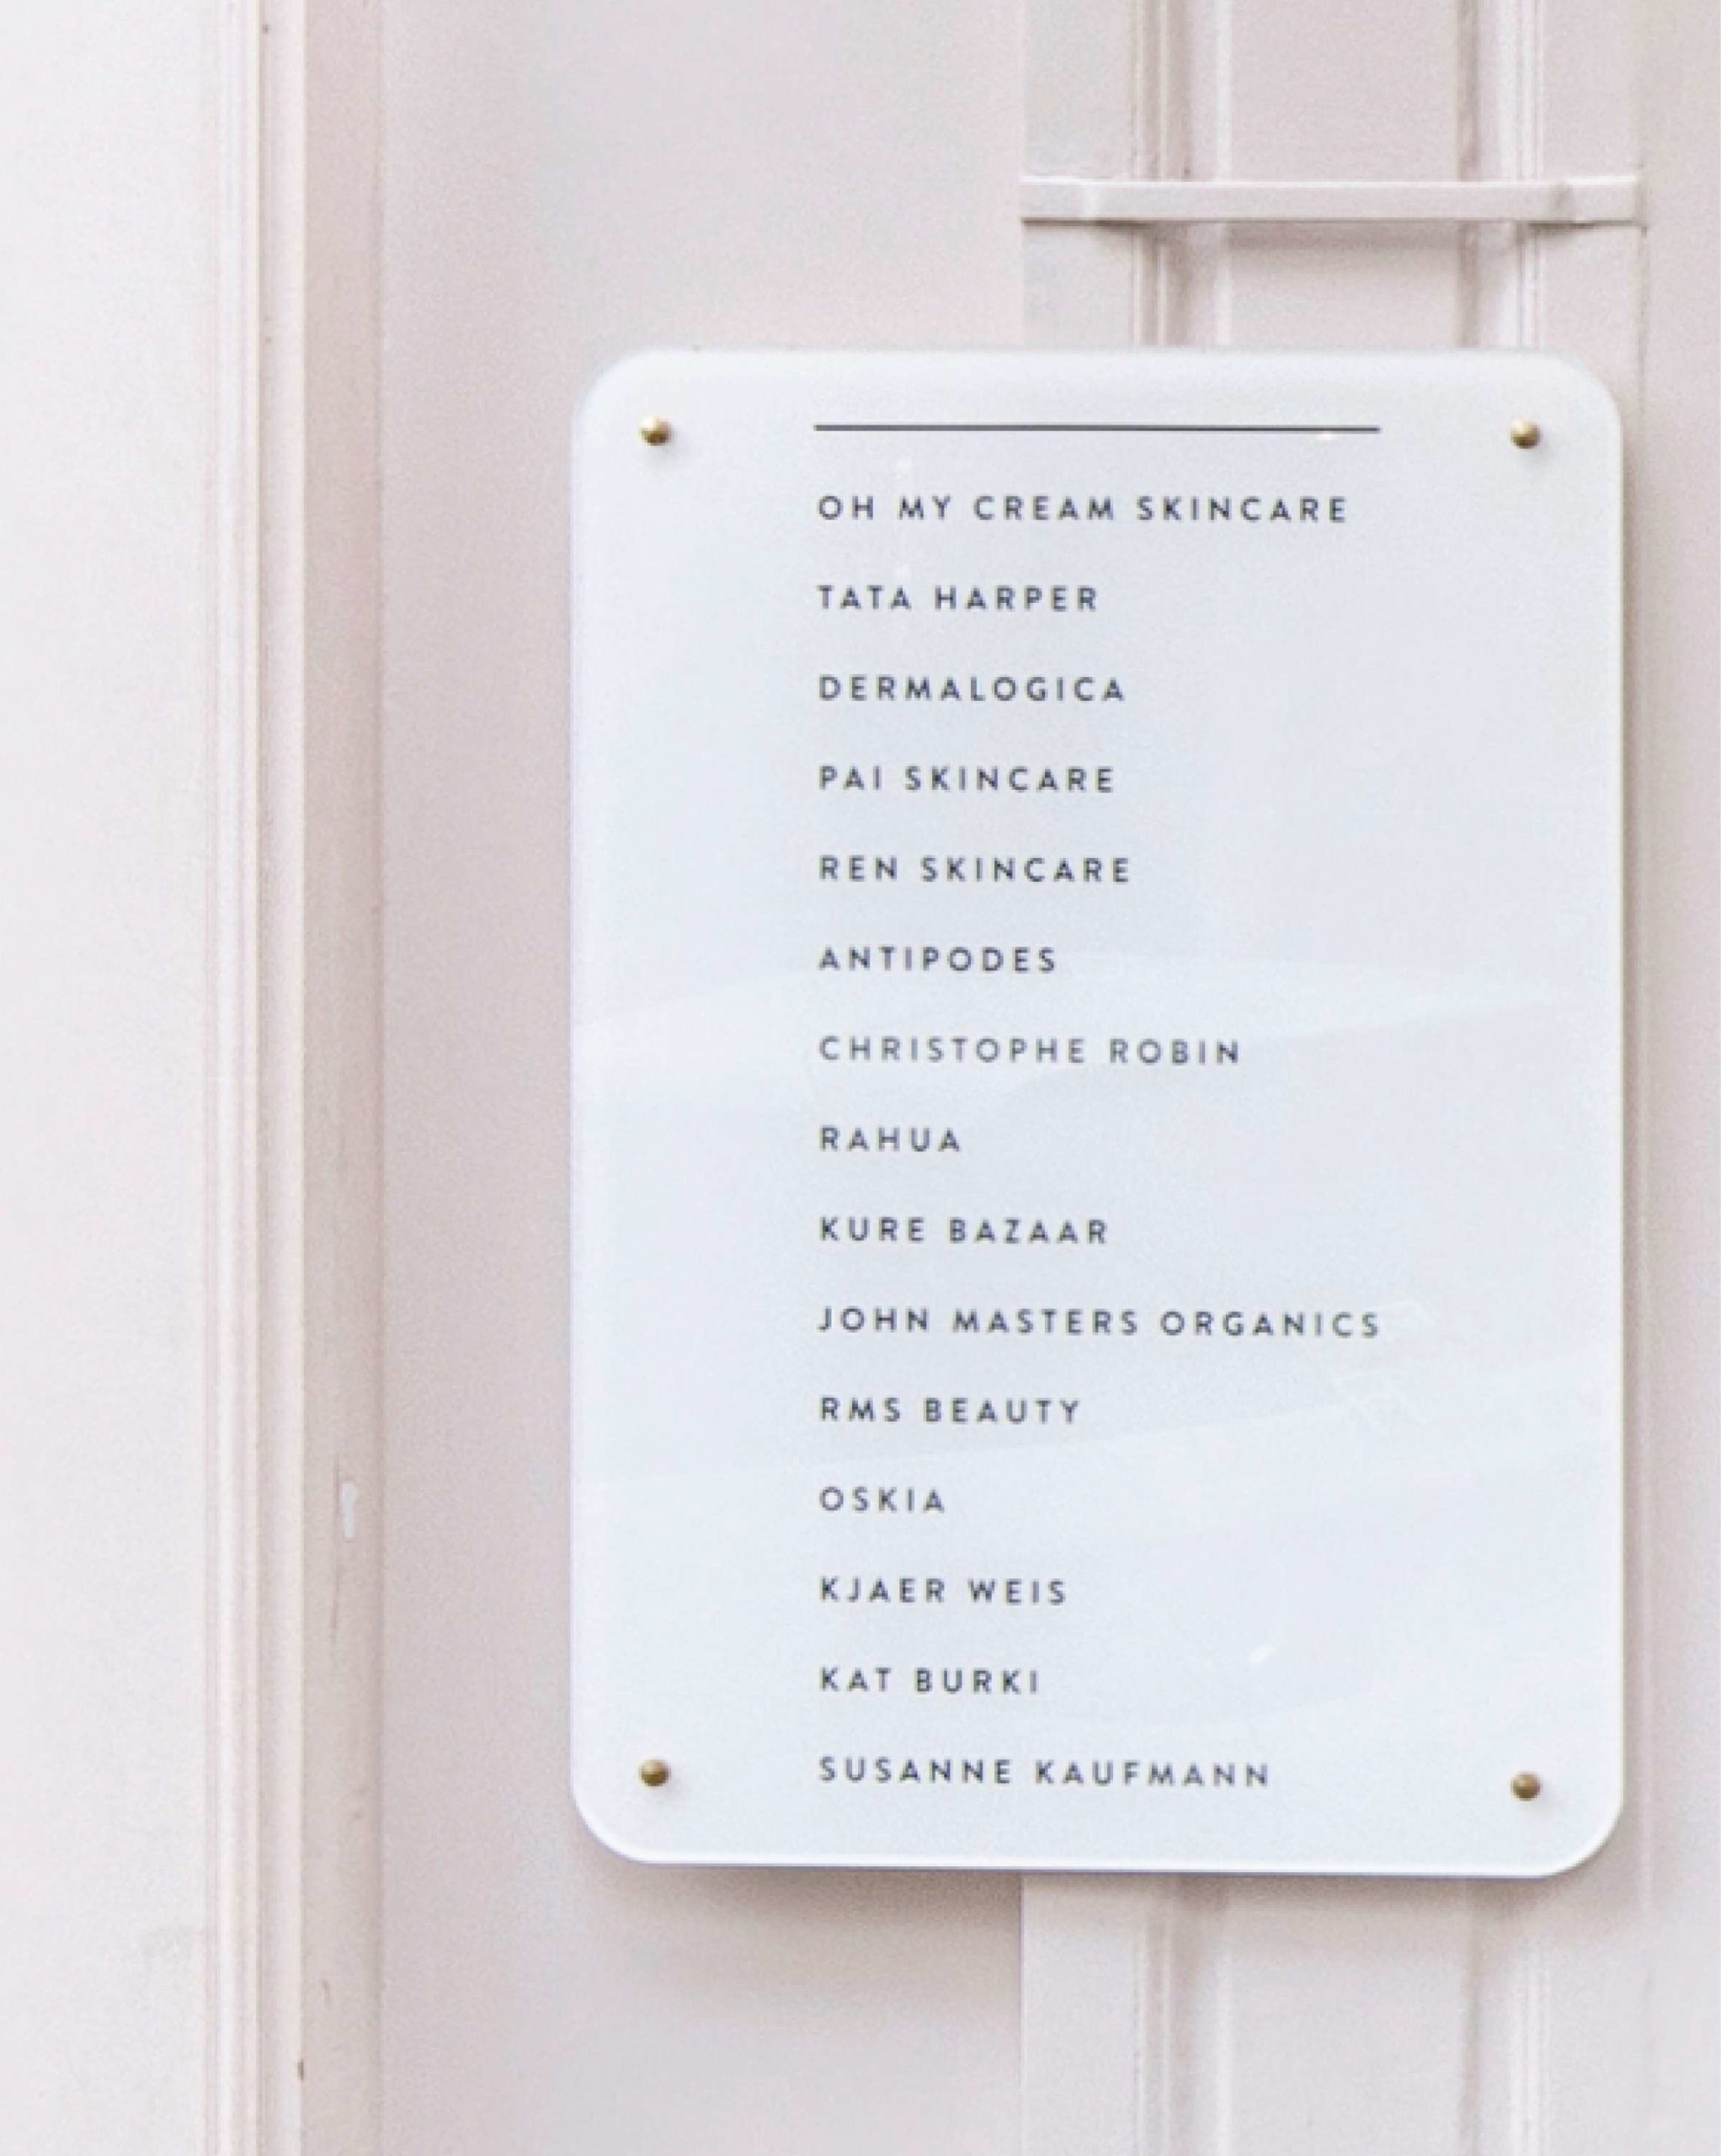 OH MY CREAM SKINCARE
TATA HARPER
DERMALOGICA
PAI SKINCARE
REN SKINCARE
ANTIPODES
CHRISTOPHE ROBIN
RAHUA
KURE BAZAAR
JOHN MASTERS ORGANICS
RMS BEAUTY
OSKIA
KJAER WEIS
KAT BURKI
SUSANNE KAUFMANN